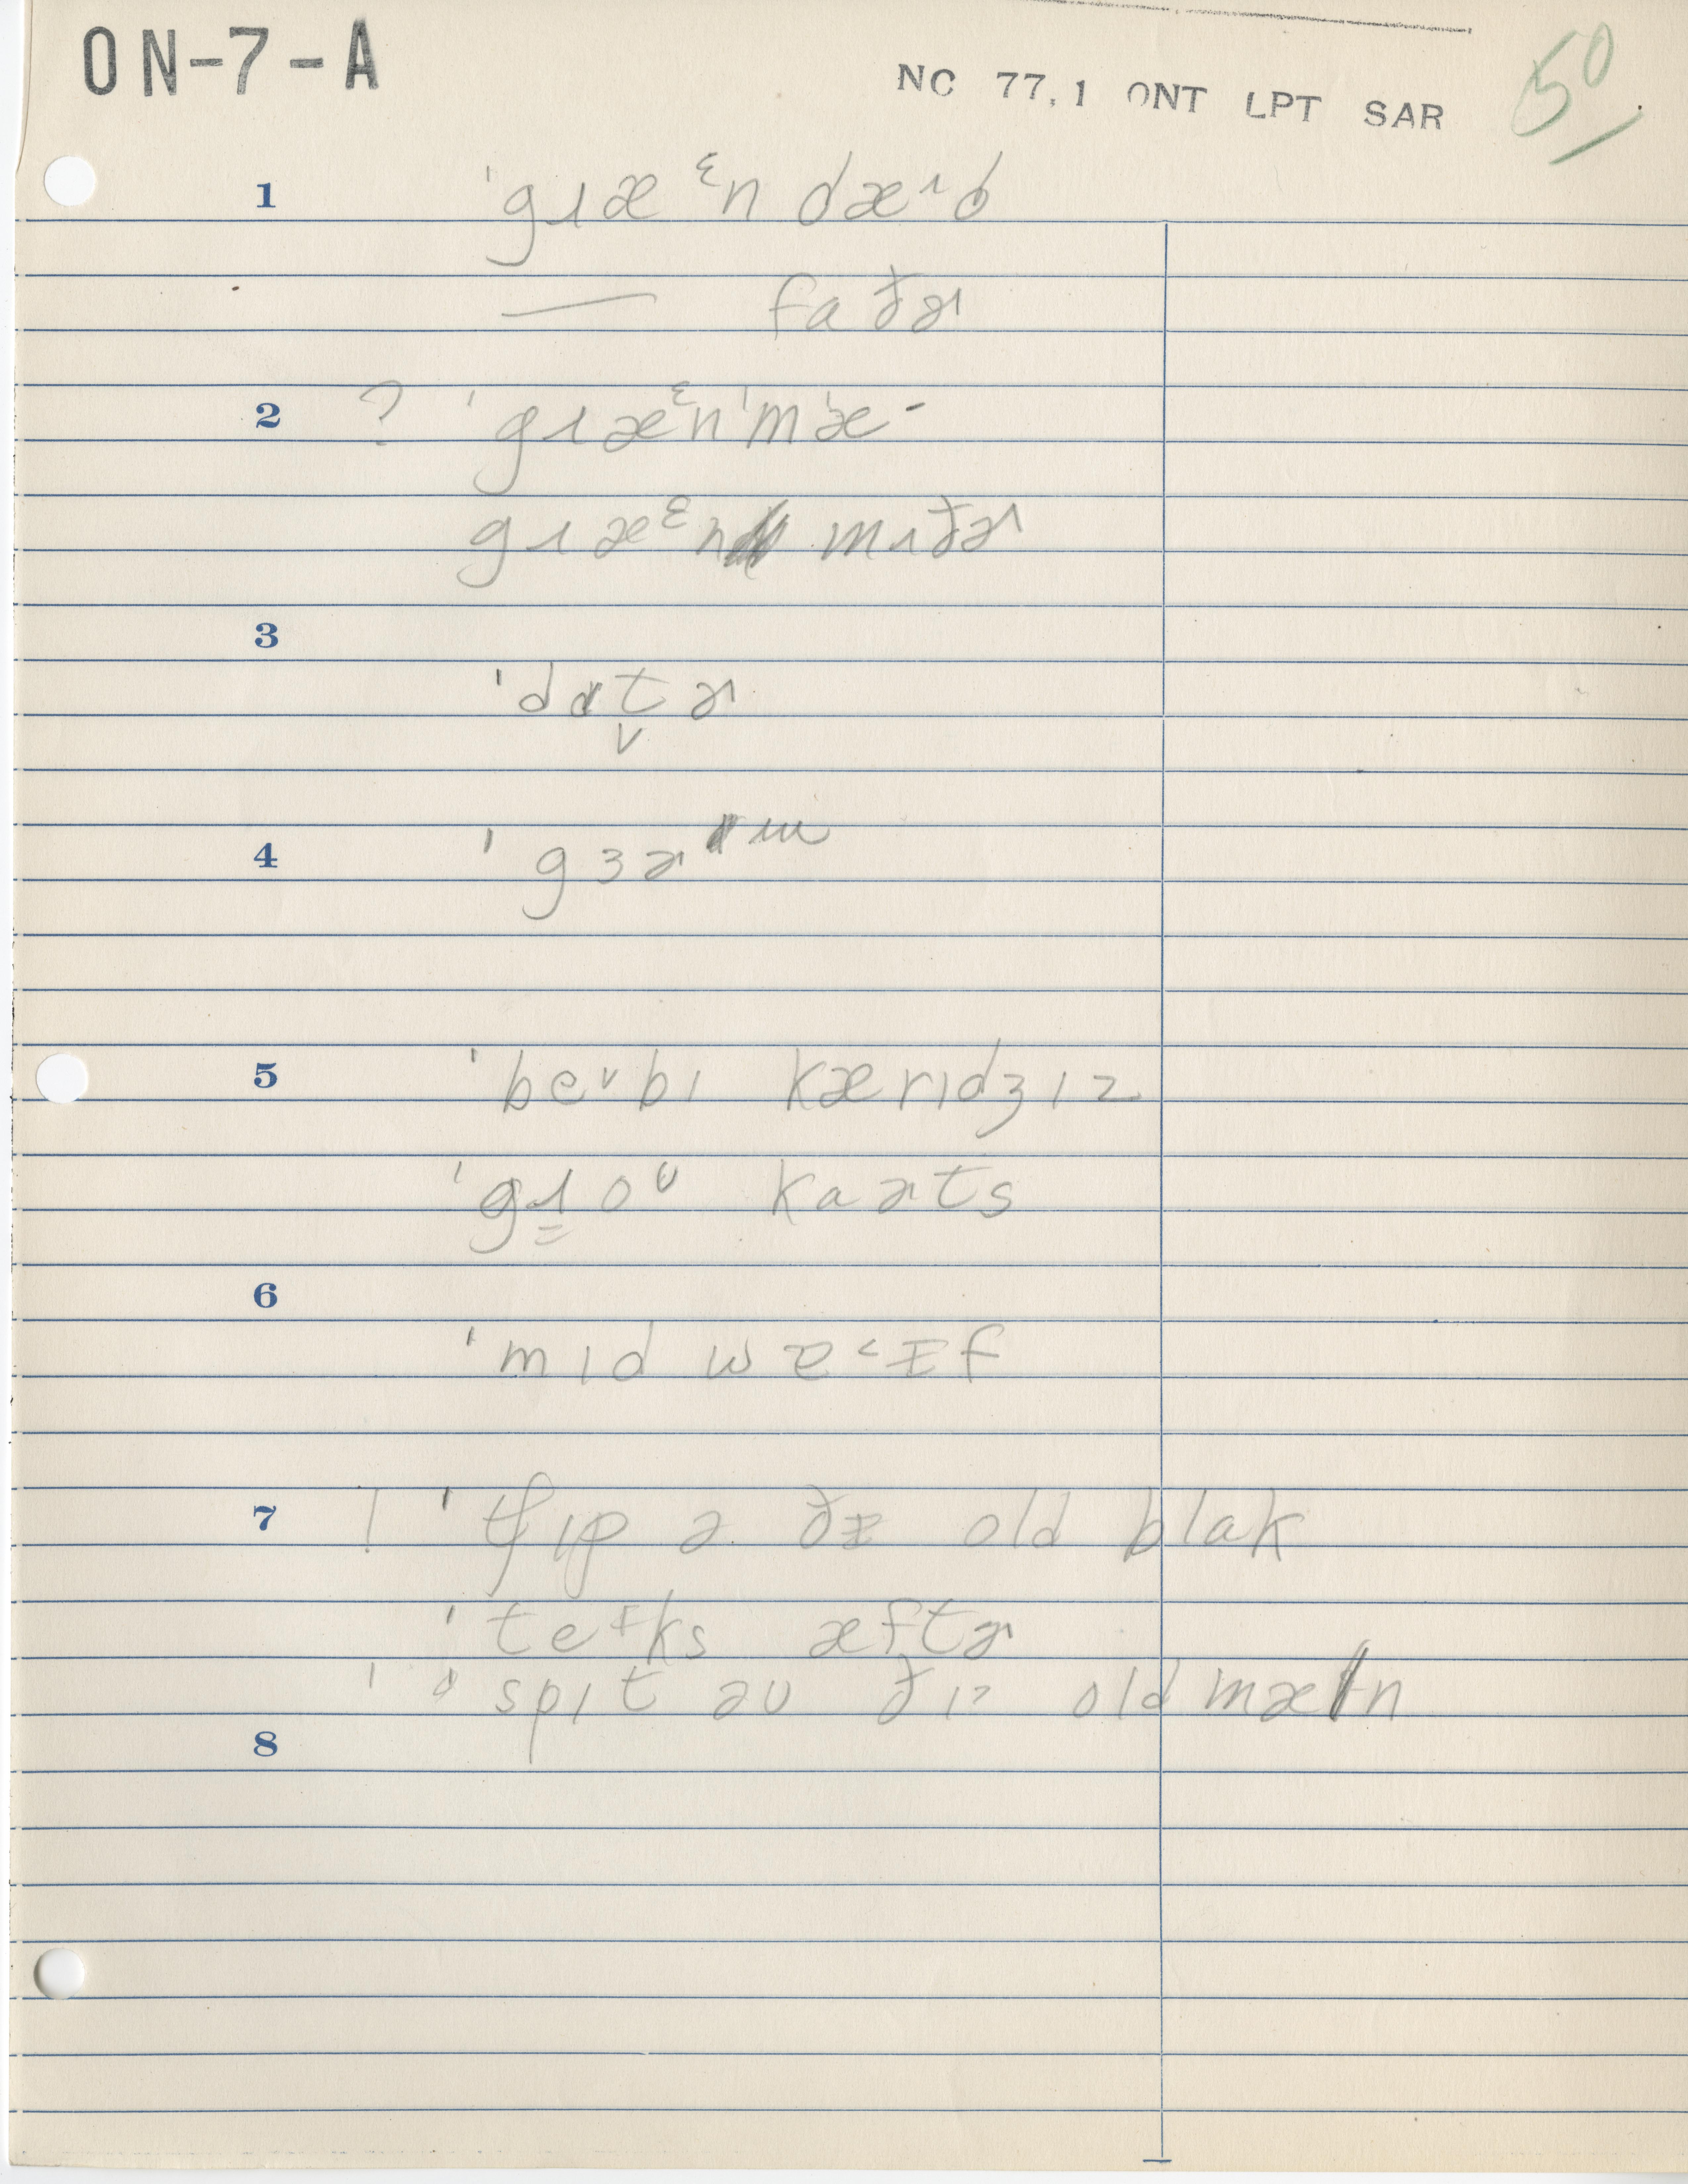 ON-7-A
NC 77.1 ONT LPT SAR 50
1 ˈgɹæᵋn dæ˄d
— faðɚ
2 ? ˈgɹæᵋnˈmæ-
gɹæᵋn mʌðɚ
3
ˈdɑt̬ɚ
4 ˈgɜɚm
5 ˈbe˅bɪ kærɪdʒɪz
ˈgɹoᵘ kaɚts
6
ˈmɪd wɐ˂ɪf
7 ! ˈtʃɪp ə ðɪ old blak
ˈteᶧks æftɚ
ˈ ˈspɪt əv ðɪ˒ old mæn
8